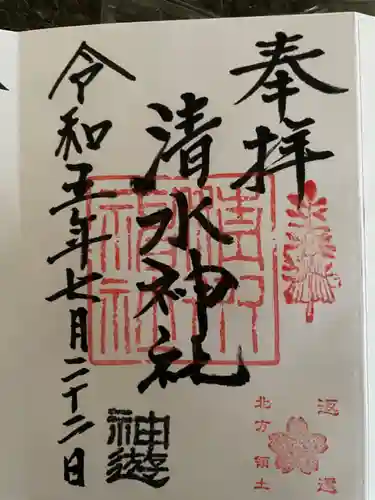 奉拝
清水神社
清水神社
令和五年七月二十二日
神遊
返還
北方領土